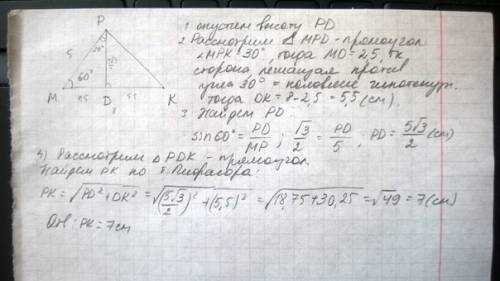 P
5
30°
60°
M 2,5 D 5,5 K
1 опустим высоту PD
2 Рассмотрим △ MPD - прямоугол
∠MPK=30°, тогда MD=2,5, тк
сторона лежащая против
угла 30° = половине гипотенузы.
тогда DK = 8-2,5 = 5,5 (см).
3 Найдем PD:
sin60° = PD/MP ; √3/2 = PD/5 , PD = 5√3/2 (см)
4) Рассмотрим △ PDK - прямоугол
Найдем PK по т. Пифагора:
PK = √PD²+DK² = √(5√3/2)²+(5,5)² = √18,75+30,25 = √49 = 7 (см)
Отв: PK = 7см